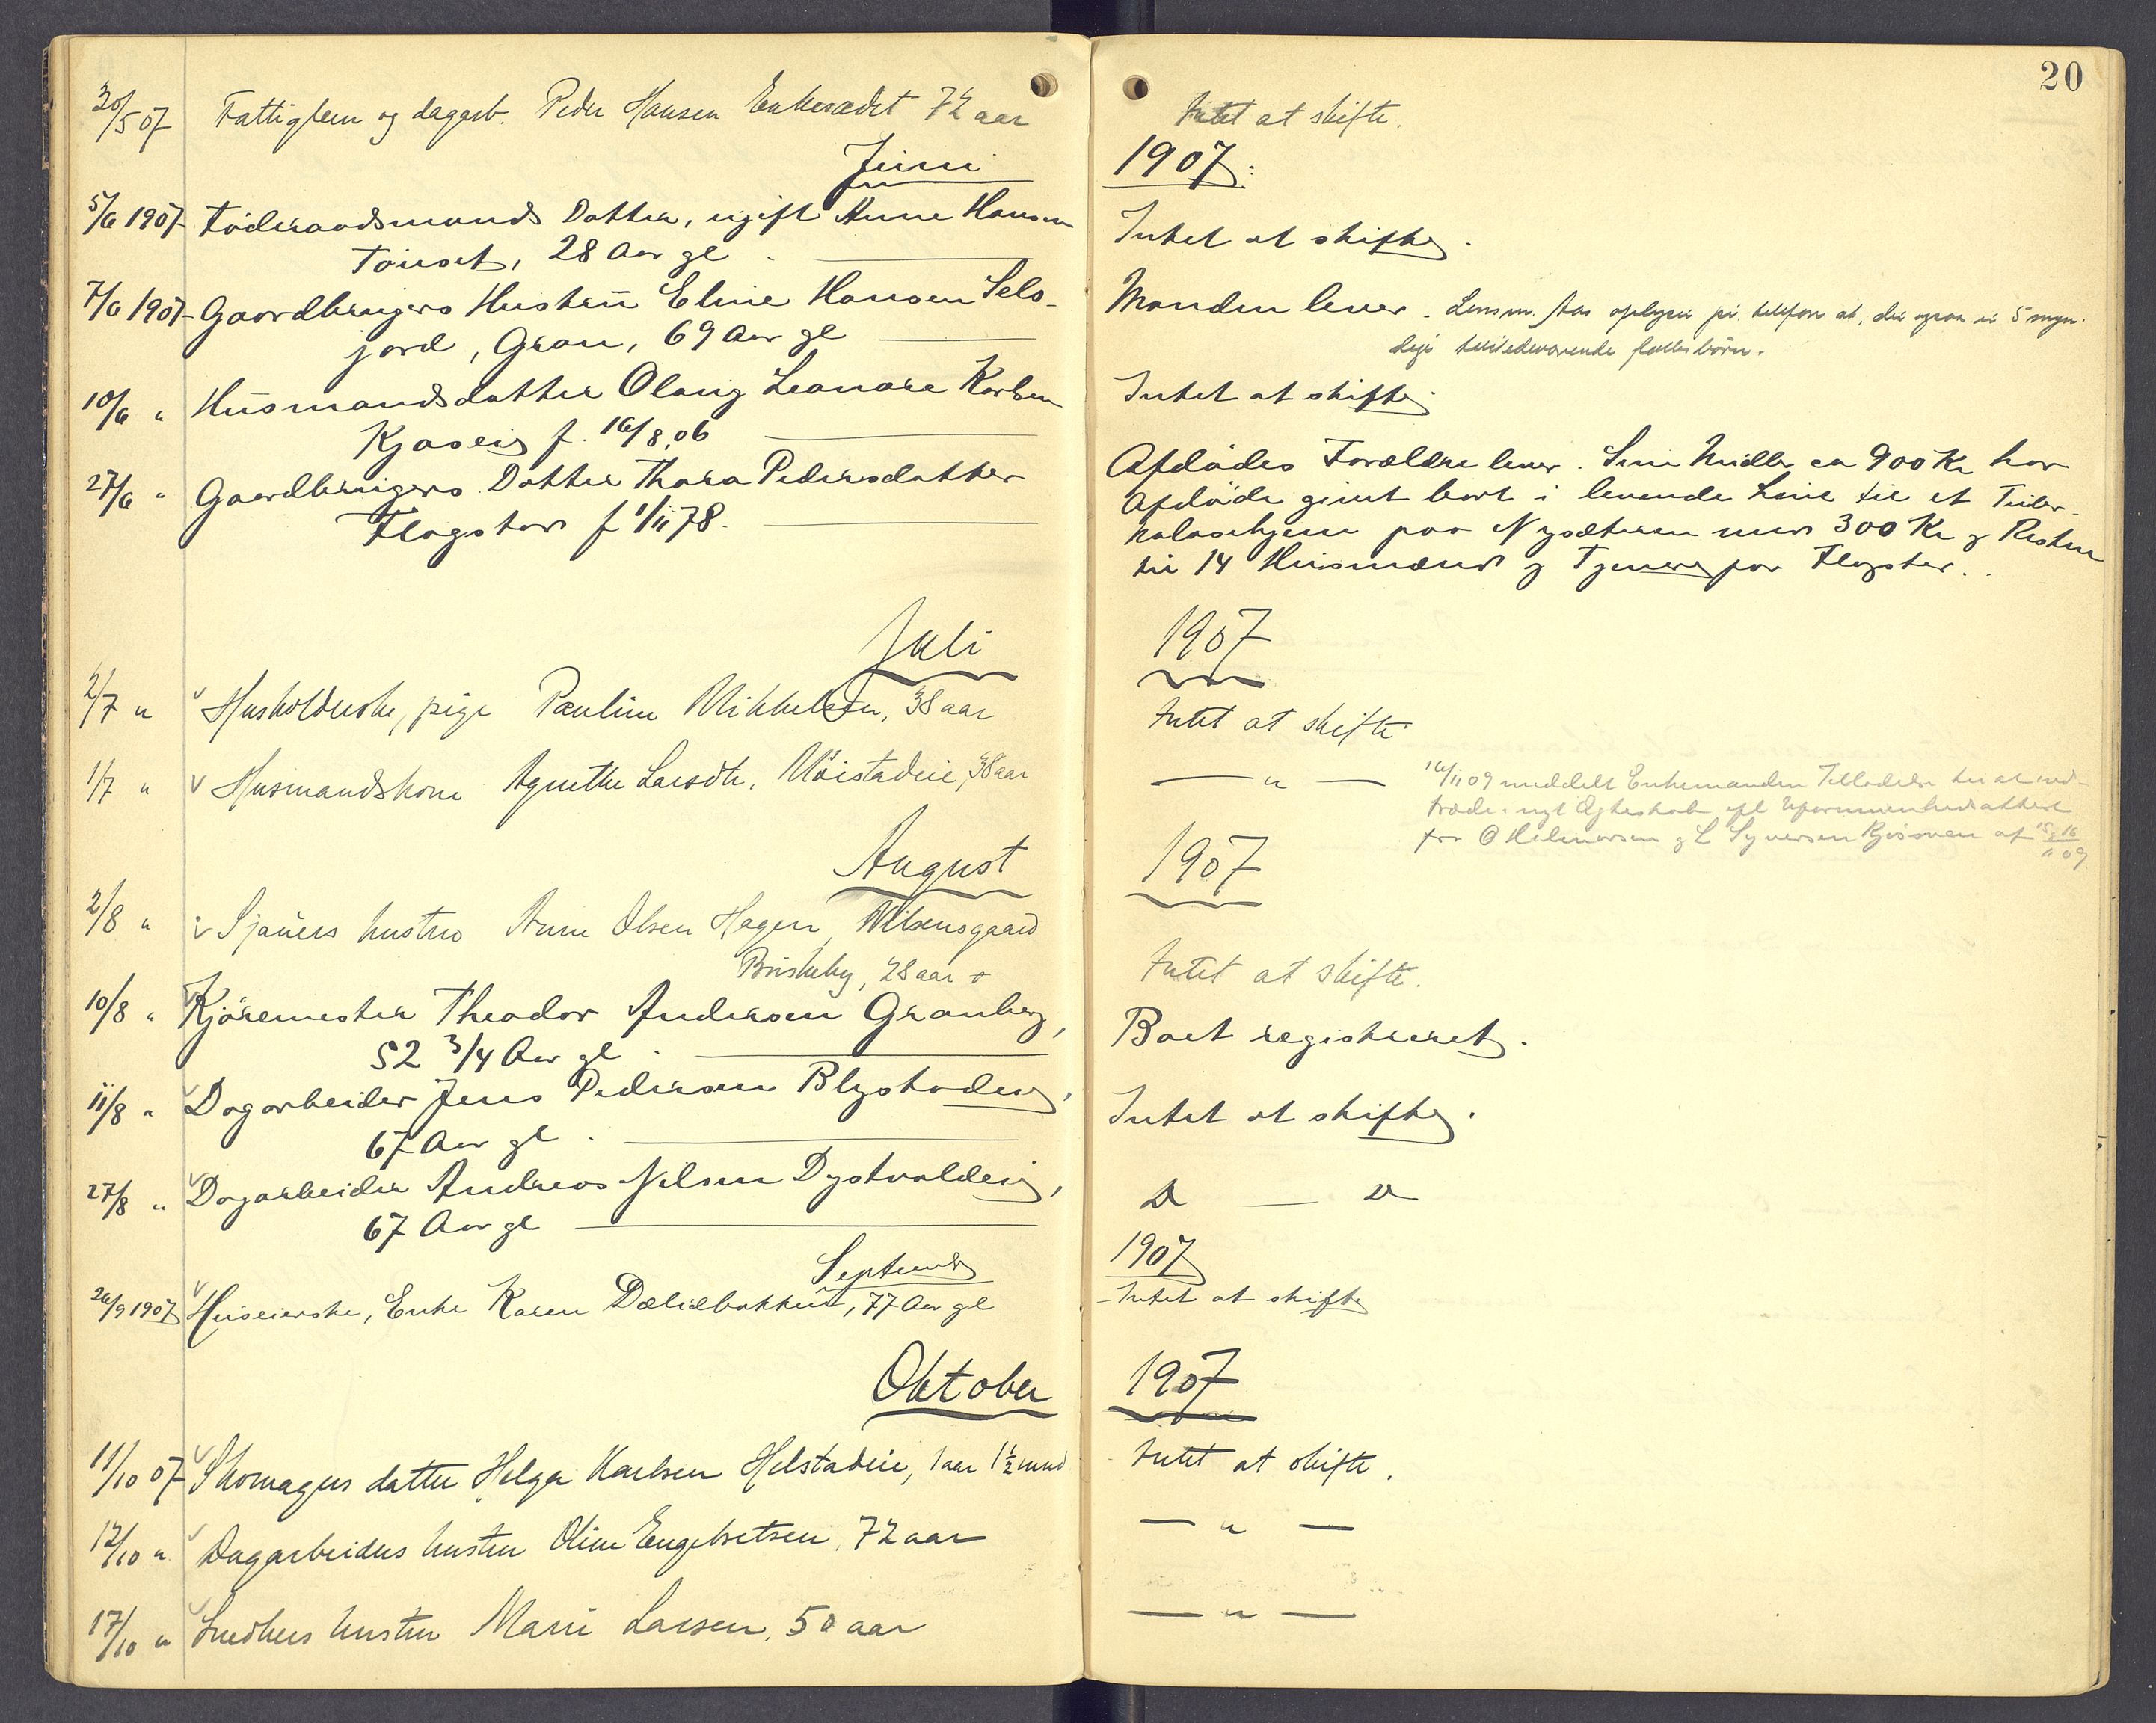 20
30/5 07 Fattiglem og dagarb. Peder Hansen Enkerædet 72 aar
Intet at skifte.
Juni
1907:
5/6 1907 Föderaadsmands Datter, ugift Anne Hansen
Tönset, 28 Aar gl.
Intet at skifte.
7/6 1907 Gaardbrugers Hustru Eline Hansen Sels-
jord, Gran, 69 Aar gl
Manden lever. Lensm. Aas oplyser pr. telefon at, der ogsaa er 5 myn-
dige tilstedeværende fællesbörn.
10/6 " Husmandsdatter Olaug Leonore Karlsen
Kjoseie f. 16/8 06
Intet at skifte.
27/6 " Gaardbrugers Datter Thora Pedersdatter
Flagstad f 1/11 78.
Afdödes Forældre lever. Sine Midler ca 900 Kr har
Afdöde givet bort i levende Live til et Tuber-
kulosehjem paa Nysæteren med 300 Kr og Resten
til 14 Husmænd og Tjenere paa Flagstad.
Juli
1907
2/7 " Husholderske, pige Pauline Mikkelsen, 38 aar
Intet at skifte
1/7 " Husmandskone Agnethe Larsdtr. Möistadeie, 38 aar
— " —
16/11 09 meddelt Enkemanden Tilladelse til at ind-
træde i nyt Ægteskab efl Uformuenhedsattest
fra O Hilmarsen og L Syversen af 15 & 16/11 09
August
1907
2/8 " Sjauers hustru Anne Olsen Hagen, Nilsensgaard
Briskeby, 28 aar
Intet at skifte.
10/8 " Kjöremester Theodor Andersen Granberg,
52 3/4 Aar gl.
Boet registreret.
11/8 " Dagarbeider Jens Pedersen Blystadeie,
67 Aar gl.
Intet at skifte.
27/8 " Dagarbeider Andreas Nilsen Dystvoldeie,
67 Aar gl
D — D
September
1907
26/9 1907 Huseierske, Enke Karen Dæliebakken, 77 Aar gl
Intet at skifte
Oktober
1907
11/10 07 Skomagers datter Helga Karlsen Helstadeie, 1 aar 1½ mnd
Intet at skifte.
12/10 " Dagarbeiders hustru Oline Engebretsen, 72 aar
— " —
17/10 " Snedkers hustru Marie Larsen, 50 aar
— " —